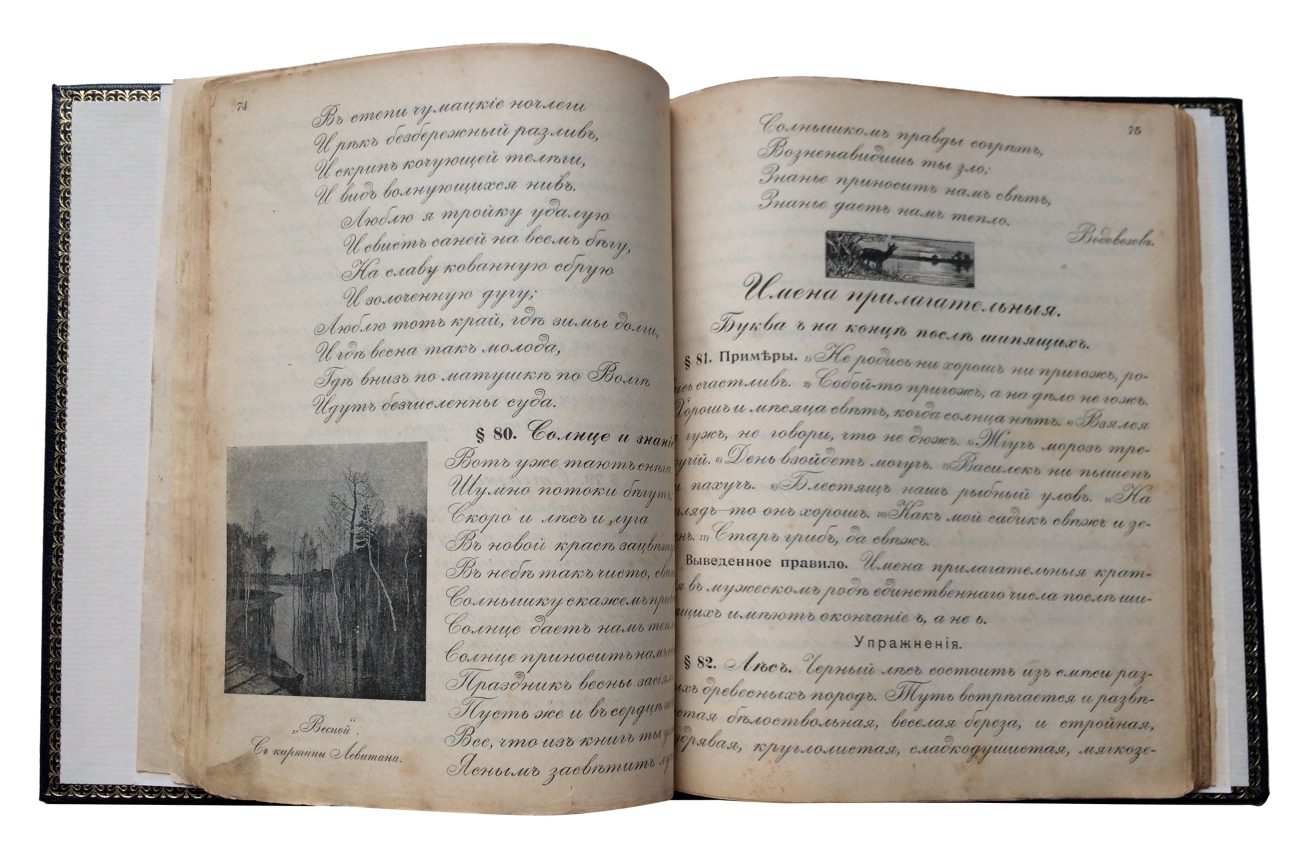 74
Въ степи чумацкіе ночлеги
И рѣкъ безбережный разливъ,
И скрипъ кочующей телѣги,
И видъ волнующихся нивъ.
Люблю я тройку удалую
И свистъ саней на всемъ бѣгу,
На славу кованную сбрую
И золоченную дугу;
Люблю тотъ край, гдѣ зимы долги,
И гдѣ весна такъ молода,
Гдѣ внизъ по матушкѣ по Волгѣ
Идутъ безчисленны суда.
§ 80. Солнце и знані
Вотъ уже таютъ снѣга,
Шумно потоки бѣгутъ,
Скоро и лѣсъ и луга
Въ новой красѣ зацвѣту
Въ небѣ такъ чисто,
Солнышку скажемъ
Солнце даетъ намъ
Солнце приноситъ намъ
Праздникъ весны
Пусть же и въ сердцѣ
Все, что изъ книгъ ты
Яснымъ засвѣтитъ
„Весной“.
Съ картины Левитана.
75
Солнышкомъ правды согрѣтъ,
Возненавидишь ты зло;
Знанье приноситъ намъ свѣтъ,
Знанье даетъ намъ тепло.
Водовозовъ.
Имена прилагательныя.
Буква ъ на концѣ послѣ шипящихъ.
§ 81. Примѣры. 1) Не родись ни хорошъ ни пригожъ, ро-
ись счастливъ. 2) Собой-то пригожъ, а на дѣло не гожъ.
Хорошъ и мѣсяца свѣтъ, когда солнца нѣтъ. 4) Взялся
гужъ, не говори, что не дюжъ. 5) Жгучъ морозъ тре-
кучій. 6) День взойдетъ могучъ. 7) Василекъ ни пышенъ
и пахучъ. 8) Блестящъ нашъ рыбный уловъ. 9) На
глядъ—то онъ хорошъ. 10) Какъ мой садикъ свѣжъ и зе-
енъ. 11) Старъ грибъ, да свѣжъ.
Выведенное правило. Имена прилагательныя крат-
я въ мужескомъ родѣ единственнаго числа послѣ ши-
ящихъ имѣютъ окончаніе ъ, а не ь.
Упражненія.
§ 82. Лѣсъ. Черный лѣсъ состоитъ изъ смѣси раз-
ихъ древесныхъ породъ. Тутъ встрѣчается и развѣ-
стая бѣлоствольная, веселая береза, и стройная,
удрявая, круглолистая, сладкодушистая, мягкозе-